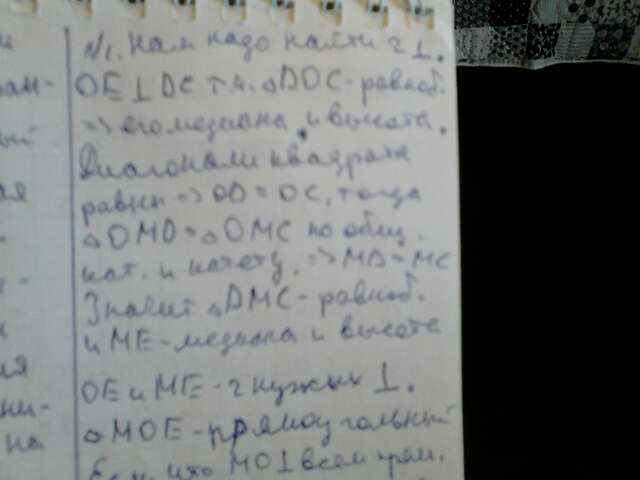 №1. Нам надо найти 2 ⊥.
OE ⊥ DC т.к. △DOC - равноб.
=> его медиана и высота.
Диагонали квадрата
равны => OD = OC, тогда
△OMD = △OMC по общ.
кат. и катету, => MD = MC
Значит △DMC - равноб.
и ME - медиана и высота
OE и ME - 2 нужных ⊥.
△MOE - прямоугольный
MO ⊥ всем прям.
ый
ая
ия
на